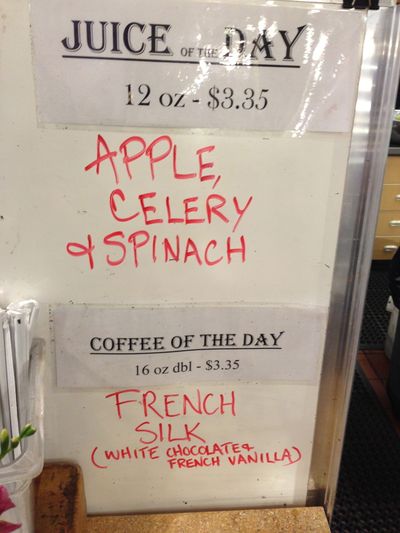 JUICE OF THE DAY
12 oz - $3.35
APPLE,
CELERY
& SPINACH
COFFEE OF THE DAY
16 oz dbl - $3.35
FRENCH
SILK
(WHITE CHOCOLATE &
FRENCH VANILLA)